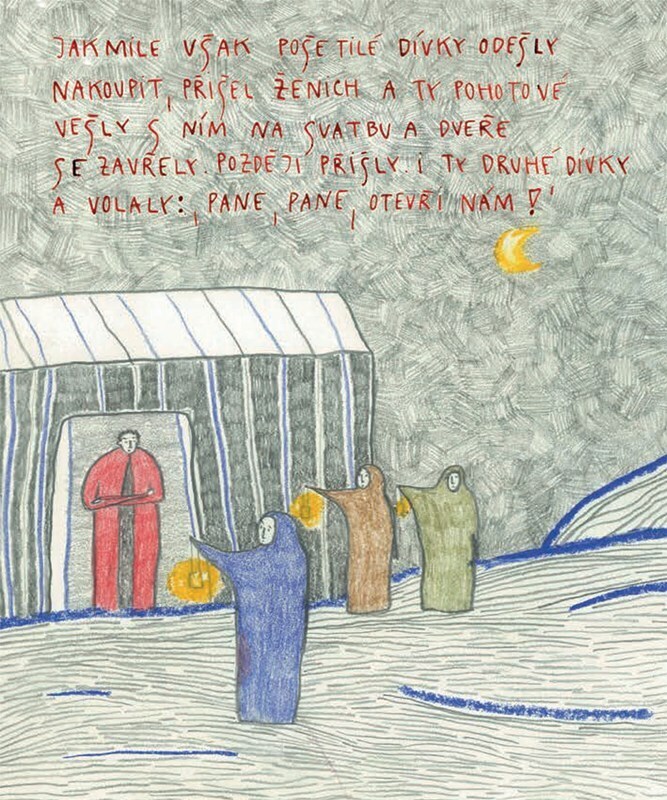 JAKMILE VŠAK POŠETILÉ DÍVKY ODEŠLY
NAKOUPIT, PŘIŠEL ŽENICH A TY POHOTOVÉ
VEŠLY S NÍM NA SVATBU A DVEŘE
SE ZAVŘELY. POZDĚJI PŘIŠLY I TY DRUHÉ DÍVKY
A VOLALY: ‚PANE, PANE, OTEVŘI NÁM!‘